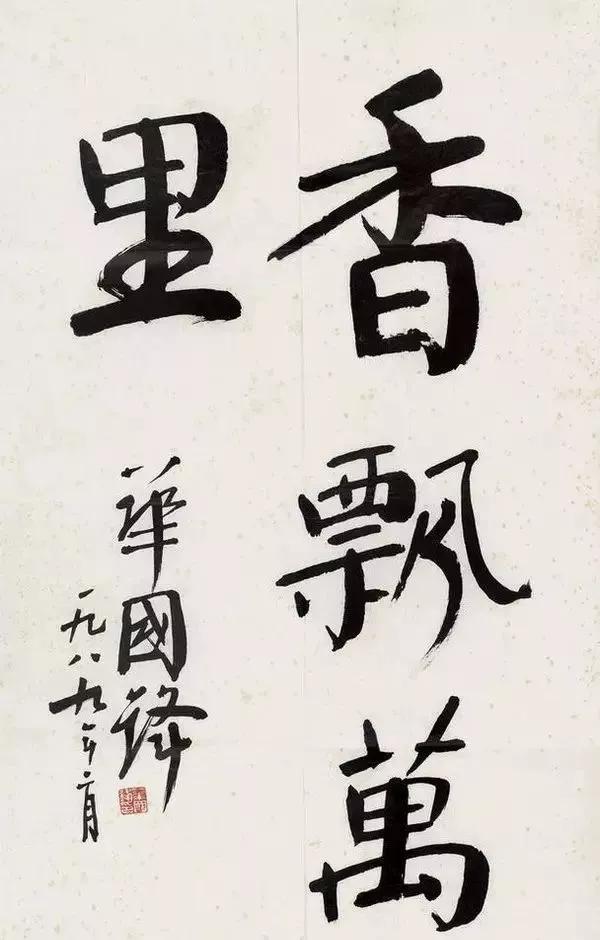 香飘萬
里
華國鋒
一九八九年二月